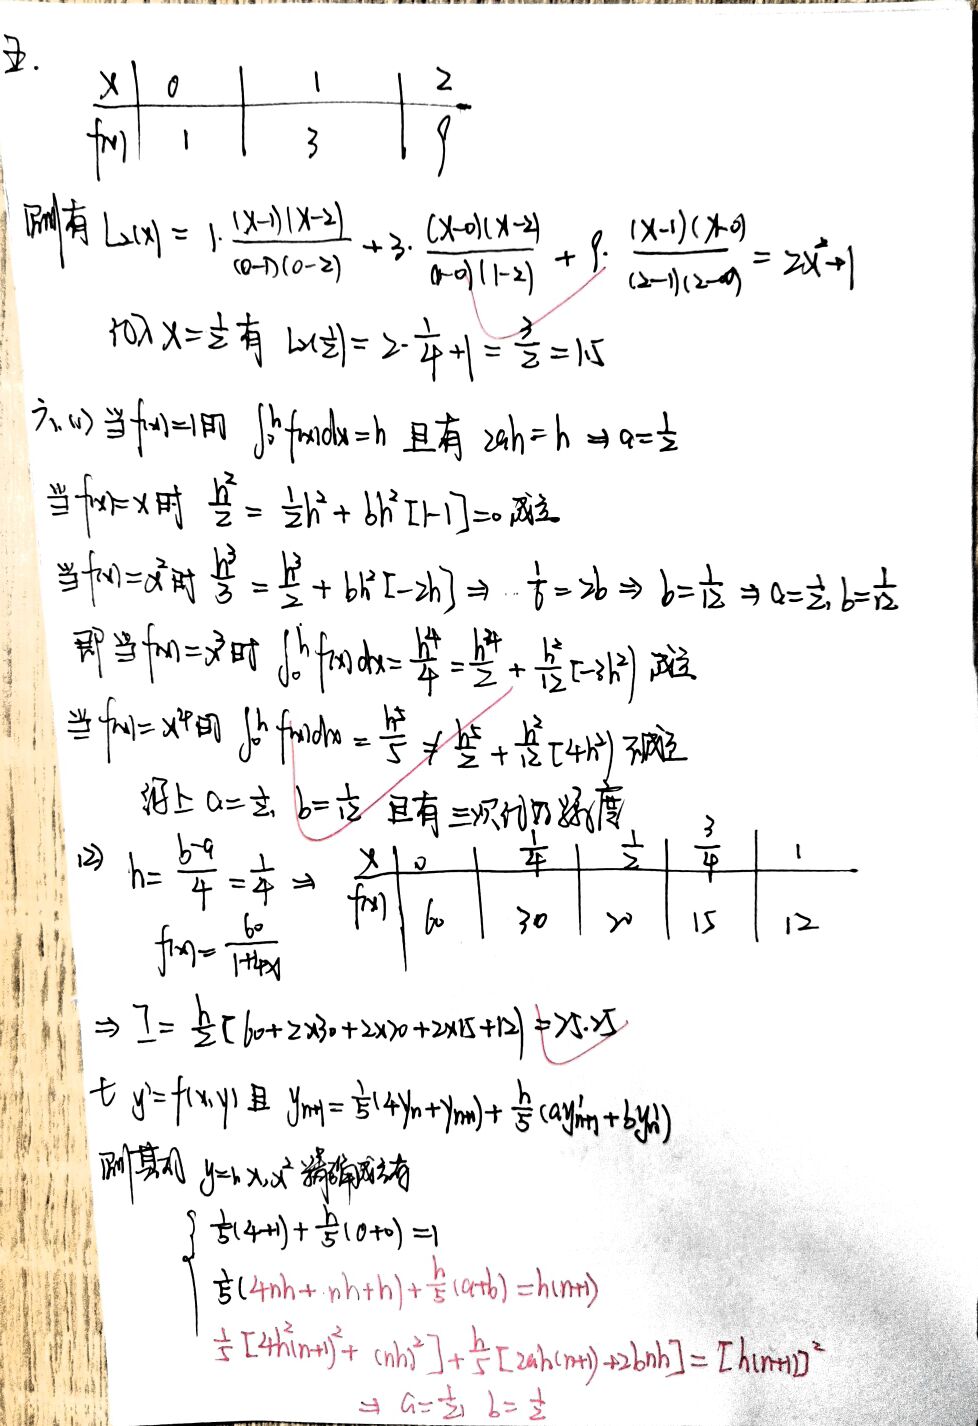 五.
x | 0 | 1 | 2
f(x) | 1 | 3 | 9
则有 L₂(x) = 1·(x-1)(x-2)/(0-1)(0-2) + 3·(x-0)(x-2)/(1-0)(1-2) + 9·(x-1)(x-0)/(2-1)(2-0) = 2x²+1
代入 x=1/2 有 L₂(1/2) = 2·1/4+1 = 3/2 = 1.5
六、(1) 当f(x)=1时 ∫₀ʰ f(x)dx=h 且有 2ah=h ⇒ a=1/2
当f(x)=x时 h²/2 = 1/2h² + bh²[1-1]=0 成立
当f(x)=x²时 h³/3 = h³/2 + bh²[-2h] ⇒ 1/6=2b ⇒ b=1/12 ⇒ a=1/2, b=1/12
即当f(x)=x³时 ∫₀ʰ f(x)dx = h⁴/4 = h⁴/2 + h²/12[-3h²) 成立
当f(x)=x⁴时 ∫₀ʰ f(x)dx = h⁵/5 ≠ h⁵/2 + h²/12[4h³) 不成立
综上 a=1/2, b=1/12 且有三次代数精度
(2) h = b-a/4 = 1/4 ⇒
x | 0 | 1/4 | 1/2 | 3/4 | 1
f(x) | 60 | 30 | 20 | 15 | 12
f(x) = 60/1+4x
⇒ I = h/2[60+2×30+2×20+2×15+12] = 25.25
七 y'=f(x,y) 且 yₙ₊₁=1/5(4yₙ+yₙ₊₁)+h/5(ay'ₙ₊₁+by'ₙ)
则其对 y=1, x, x² 精确成立有
1/5(4+1)+h/5(0+0)=1
1/5(4nh+nh+h)+h/5(a+b)=h(n+1)
1/5[4h²(n+1)²+(nh)²]+h/5[2ah(n+1)+2bnh]=[h(n+1)]²
⇒ a=1/2, b=1/2